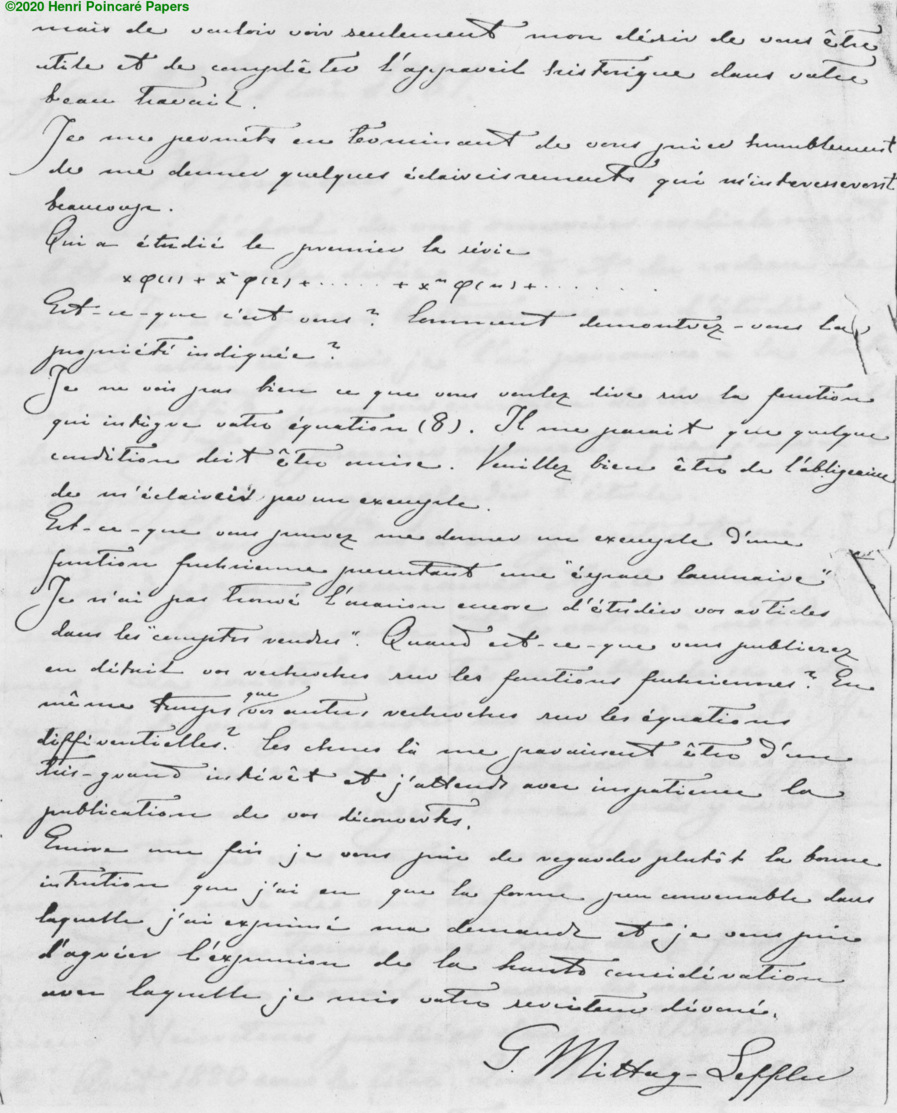 ©2020 Henri Poincaré Papers
mais de vouloir voir seulement mon désir de vous être
utile et de complêter l'appareil historique dans votre
beau travail.
Je me permets en terminant de vous prier humblement
de me donner quelques éclaircissements qui m'interesseront
beaucoup.
Qui a étudié le premier la série
x φ(1) + x² φ(2) + ..... + xⁿ φ(n) + .......
Est-ce-que c'est vous? Comment demontrez-vous la
propriété indiquée?
Je ne vois pas bien ce que vous voulez dire sur la fonction
qui intègre votre équation (8). Il me parait que quelque
condition doit être omise. Veuillez bien être de l'obligeance
de m'éclaircir par un exemple.
Est-ce-que vous pouvez me donner un exemple d'une
fonction fuchsienne presentant une "éspace lacunaire"
Je n'ai pas trouvé l'occasion encore d'étudier vos articles
dans les "comptes rendus". Quand est-ce-que vous publierez
en détail vos recherches sur les fonctions fuchsiennes? En
même temps que vos autres recherches sur les équations
différentielles? Ces choses là me paraissent être d'un
très-grand intérêt et j'attends avec impatience la
publication de vos découvertes.
Encore une fois je vous prie de regarder plutôt la bonne
intention que j'ai eu que la forme peu convenable dans
laquelle j'ai exprimé ma demande et je vous prie
d'agréer l'expression de la haute considération
avec laquelle je suis votre serviteur dévoué.
G. Mittag-Leffler